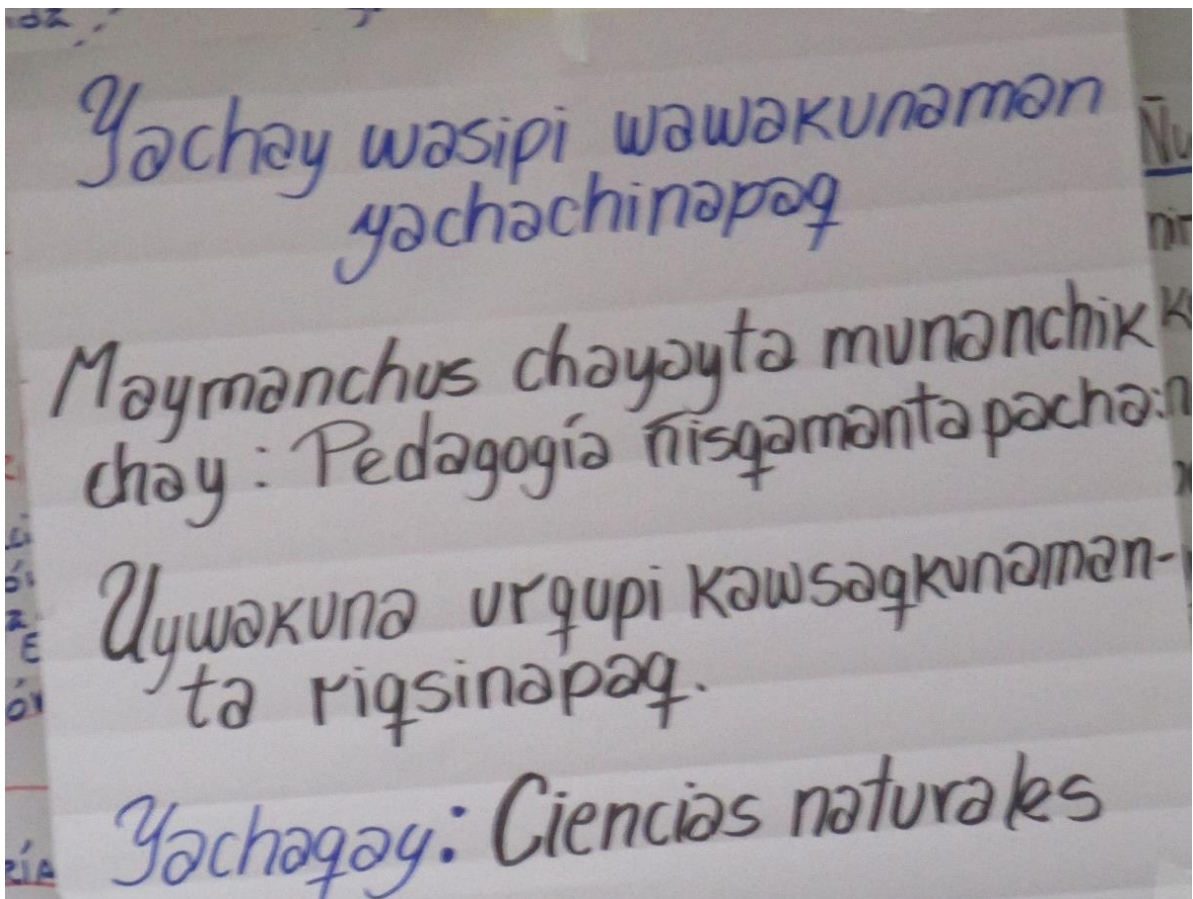 Yachay wasipi wawakunaman
yachachinapaq
Maymanchus chayayta munanchik
chay: Pedagogía ñisqamanta pacha:
Uywakuna urqupi kawsaqkunaman-
ta riqsinapaq.
Yachaqay: Ciencias naturales